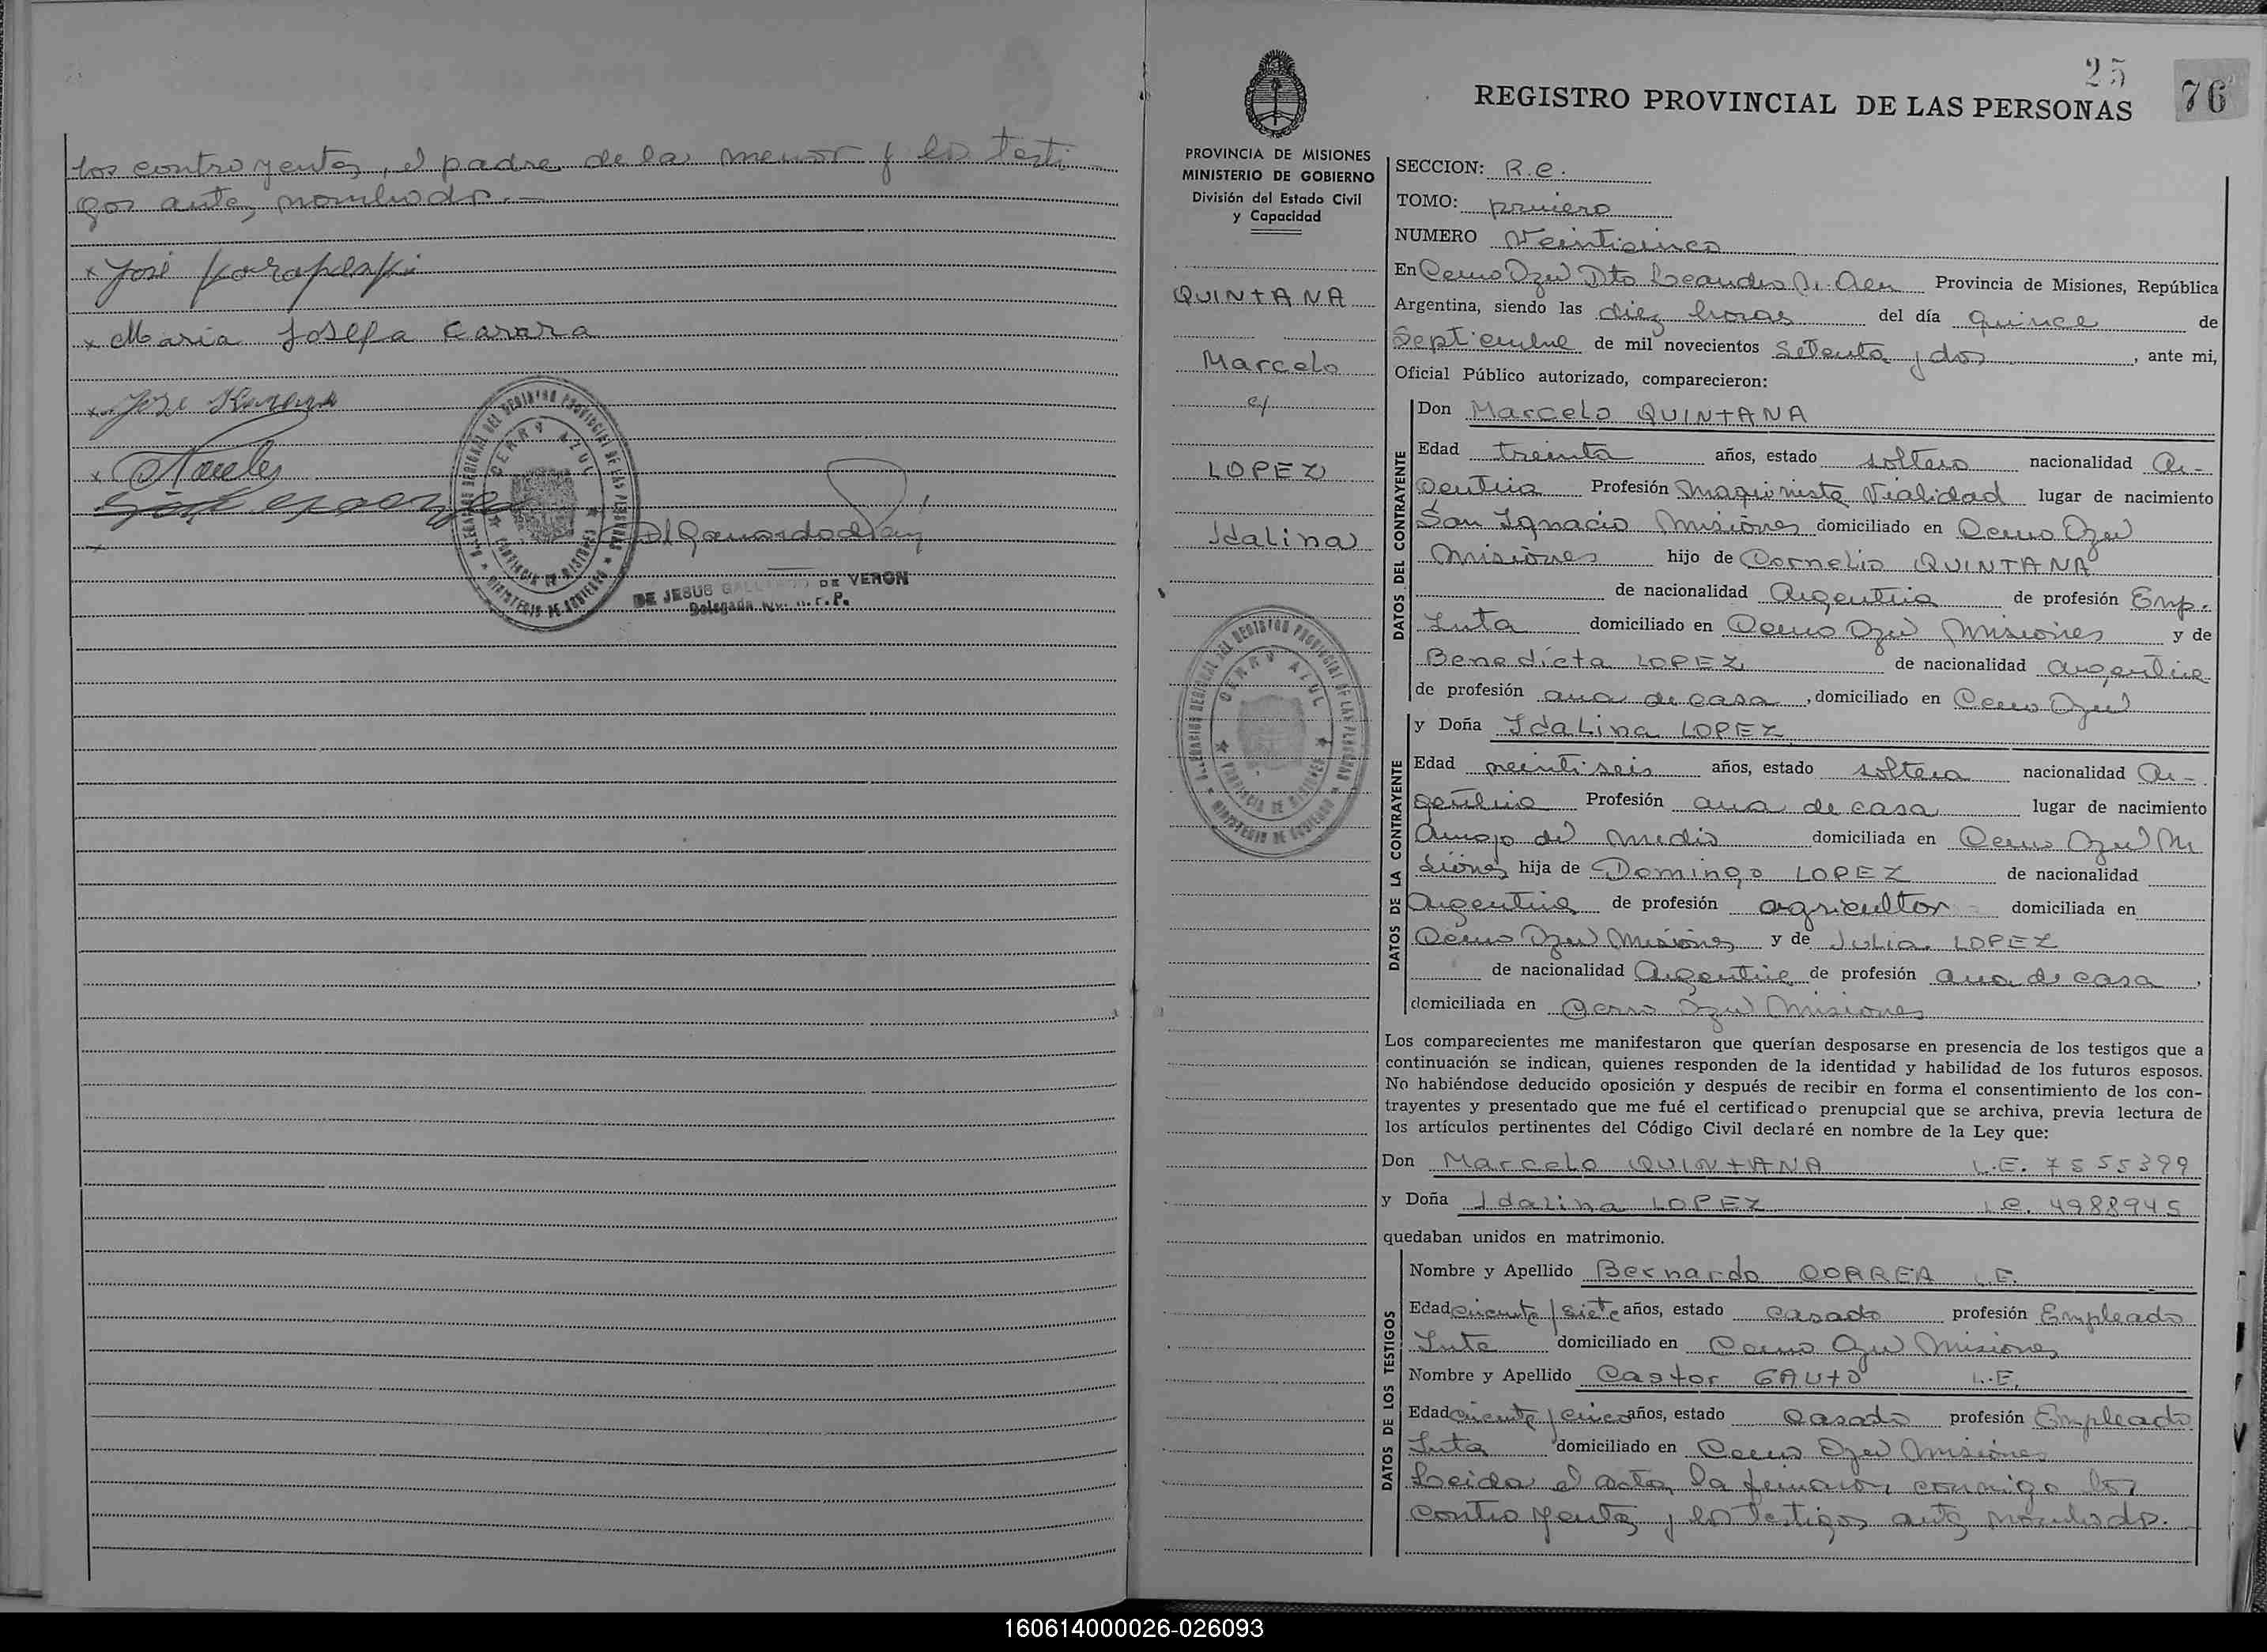 los contrayentes, el padre de la menor y los testi
gos antes nombrados.-
x José
x Maria Josefa Carara
x Jose
x
x
DELEGACION SECCIONAL DEL REGISTRO PROVINCIAL DE LAS PERSONAS
CERRO AZUL
PROVINCIA DE MISIONES
MINISTERIO DE GOBIERNO
DE JESUS DE VERON
Delegada R.P.
25
76
REGISTRO PROVINCIAL DE LAS PERSONAS
PROVINCIA DE MISIONES
MINISTERIO DE GOBIERNO
División del Estado Civil
y Capacidad
QUINTANA
Marcelo
c/
LOPEZ
Idalina
DELEGACION SECCIONAL DEL REGISTRO PROVINCIAL DE LAS PERSONAS
CERRO AZUL
PROVINCIA DE MISIONES
MINISTERIO DE GOBIERNO
SECCION: R.C.
TOMO: primero
NUMERO Veinticinco
En Cerro Azul Dto Leandro N. Alem Provincia de Misiones, República
Argentina, siendo las diez horas del día quince de
Septiembre de mil novecientos setenta y dos, ante mi,
Oficial Público autorizado, comparecieron:
DATOS DEL CONTRAYENTE
Don Marcelo QUINTANA
Edad treinta años, estado soltero nacionalidad Ar-
gentina Profesión Maquinista Vialidad lugar de nacimiento
San Ignacio Misiones domiciliado en Cerro Azul
Misiones hijo de Cornelio QUINTANA
de nacionalidad Argentina de profesión Emp.
Inta domiciliado en Cerro Azul Misiones y de
Benedicta LOPEZ de nacionalidad argentina
de profesión ama de casa, domiciliado en Cerro Azul
DATOS DE LA CONTRAYENTE
y Doña Idalina LOPEZ
Edad veintiseis años, estado soltera nacionalidad Ar-
gentina Profesión ama de casa lugar de nacimiento
Arroyo del Medio domiciliada en Cerro Azul Mi
siones hija de Domingo LOPEZ de nacionalidad
Argentina de profesión agricultor domiciliada en
Cerro Azul Misiones y de Julia LOPEZ
de nacionalidad Argentina de profesión ama de casa,
domiciliada en Cerro Azul Misiones
Los comparecientes me manifestaron que querían desposarse en presencia de los testigos que a
continuación se indican, quienes responden de la identidad y habilidad de los futuros esposos.
No habiéndose deducido oposición y después de recibir en forma el consentimiento de los con-
trayentes y presentado que me fué el certificado prenupcial que se archiva, previa lectura de
los artículos pertinentes del Código Civil declaré en nombre de la Ley que:
Don Marcelo QUINTANA L.E. 7555399
y Doña Idalina LOPEZ L.C. 4988945
quedaban unidos en matrimonio.
DATOS DE LOS TESTIGOS
Nombre y Apellido Bernardo CORREA L.E.
Edad cincuenta y siete años, estado casado profesión Empleado
Inta domiciliado en Cerro Azul Misiones
Nombre y Apellido Castor GAUTO L.E.
Edad cincuenta y cinco años, estado Casado profesión Empleado
Inta domiciliado en Cerro Azul Misiones
Leida el acta, la firmaron conmigo los
contrayentes y los testigos antes nombrados.
160614000026-026093